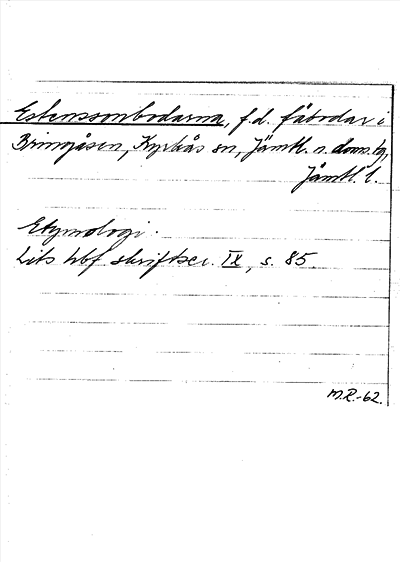 Estenssonbodarna, f.d. fäbodar i
Bringåsen, Kyrkås sn, Jämtl. n. doms.bg,
Jämtl. l.
Etymologi:
Lits hbf skriftser. IX, s. 85.
M.R.-62.